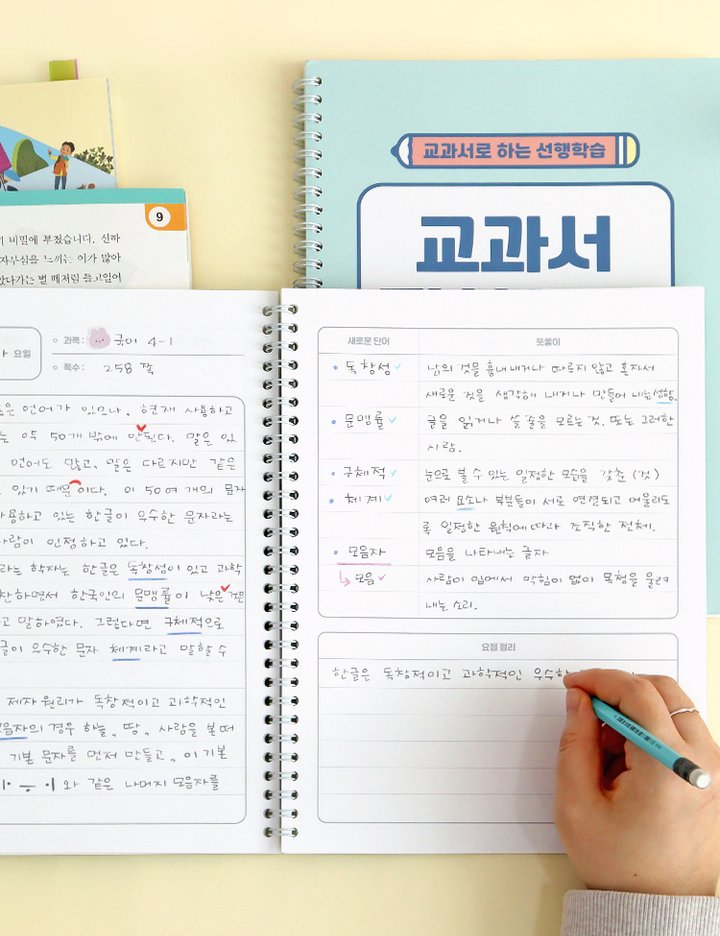 9
비밀에 부쳤습니다. 신하
자부심을 느끼는 이가 많아
았다가는 벌 떼처럼 들고일어
교과서로 하는 선행학습
교과서
요일
과목: 국어 4-1
쪽수: 258 쪽
은 언어가 있으나. 현재 사용하고
는 약 50개 밖에 안된다. 말은 있
언어도 많고, 말은 다르지만 같은
있기 때문이다. 이 50여 개의 문자
사용하고 있는 한글이 우수한 문자라는
사람이 인정하고 있다.
라는 학자는 한글은 독창성이 있고 과학
찬하면서 한국인의 문맹률이 낮은 것은
고 말하였다. 그렇다면 구체적으로
글이 우수한 문자 체계라고 말할 수
제자 원리가 독창적이고 과학적인
모음자의 경우 하늘, 땅, 사람을 본떠
기본 문자를 먼저 만들고, 이 기본
와 같은 나머지 모음자를
새로운 단어 뜻풀이
독창성 남의 것을 흉내내거나 따르지 않고 혼자서
새로운 것을 생각해 내거나 만들어 내는 성향.
문맹률 글을 읽거나 쓸 줄을 모르는 것. 또는 그러한
사람.
구체적 눈으로 볼 수 있는 일정한 모습을 갖춘 (것)
체계 여러 요소나 부분들이 서로 연결되고 어울리도
록 일정한 원칙에 따라 조직한 전체.
모음자 모음을 나타내는 글자
모음 사람이 입에서 막힘이 없이 목청을 울려
내는 소리.
요점 정리
한글은 독창적이고 과학적인 우수한